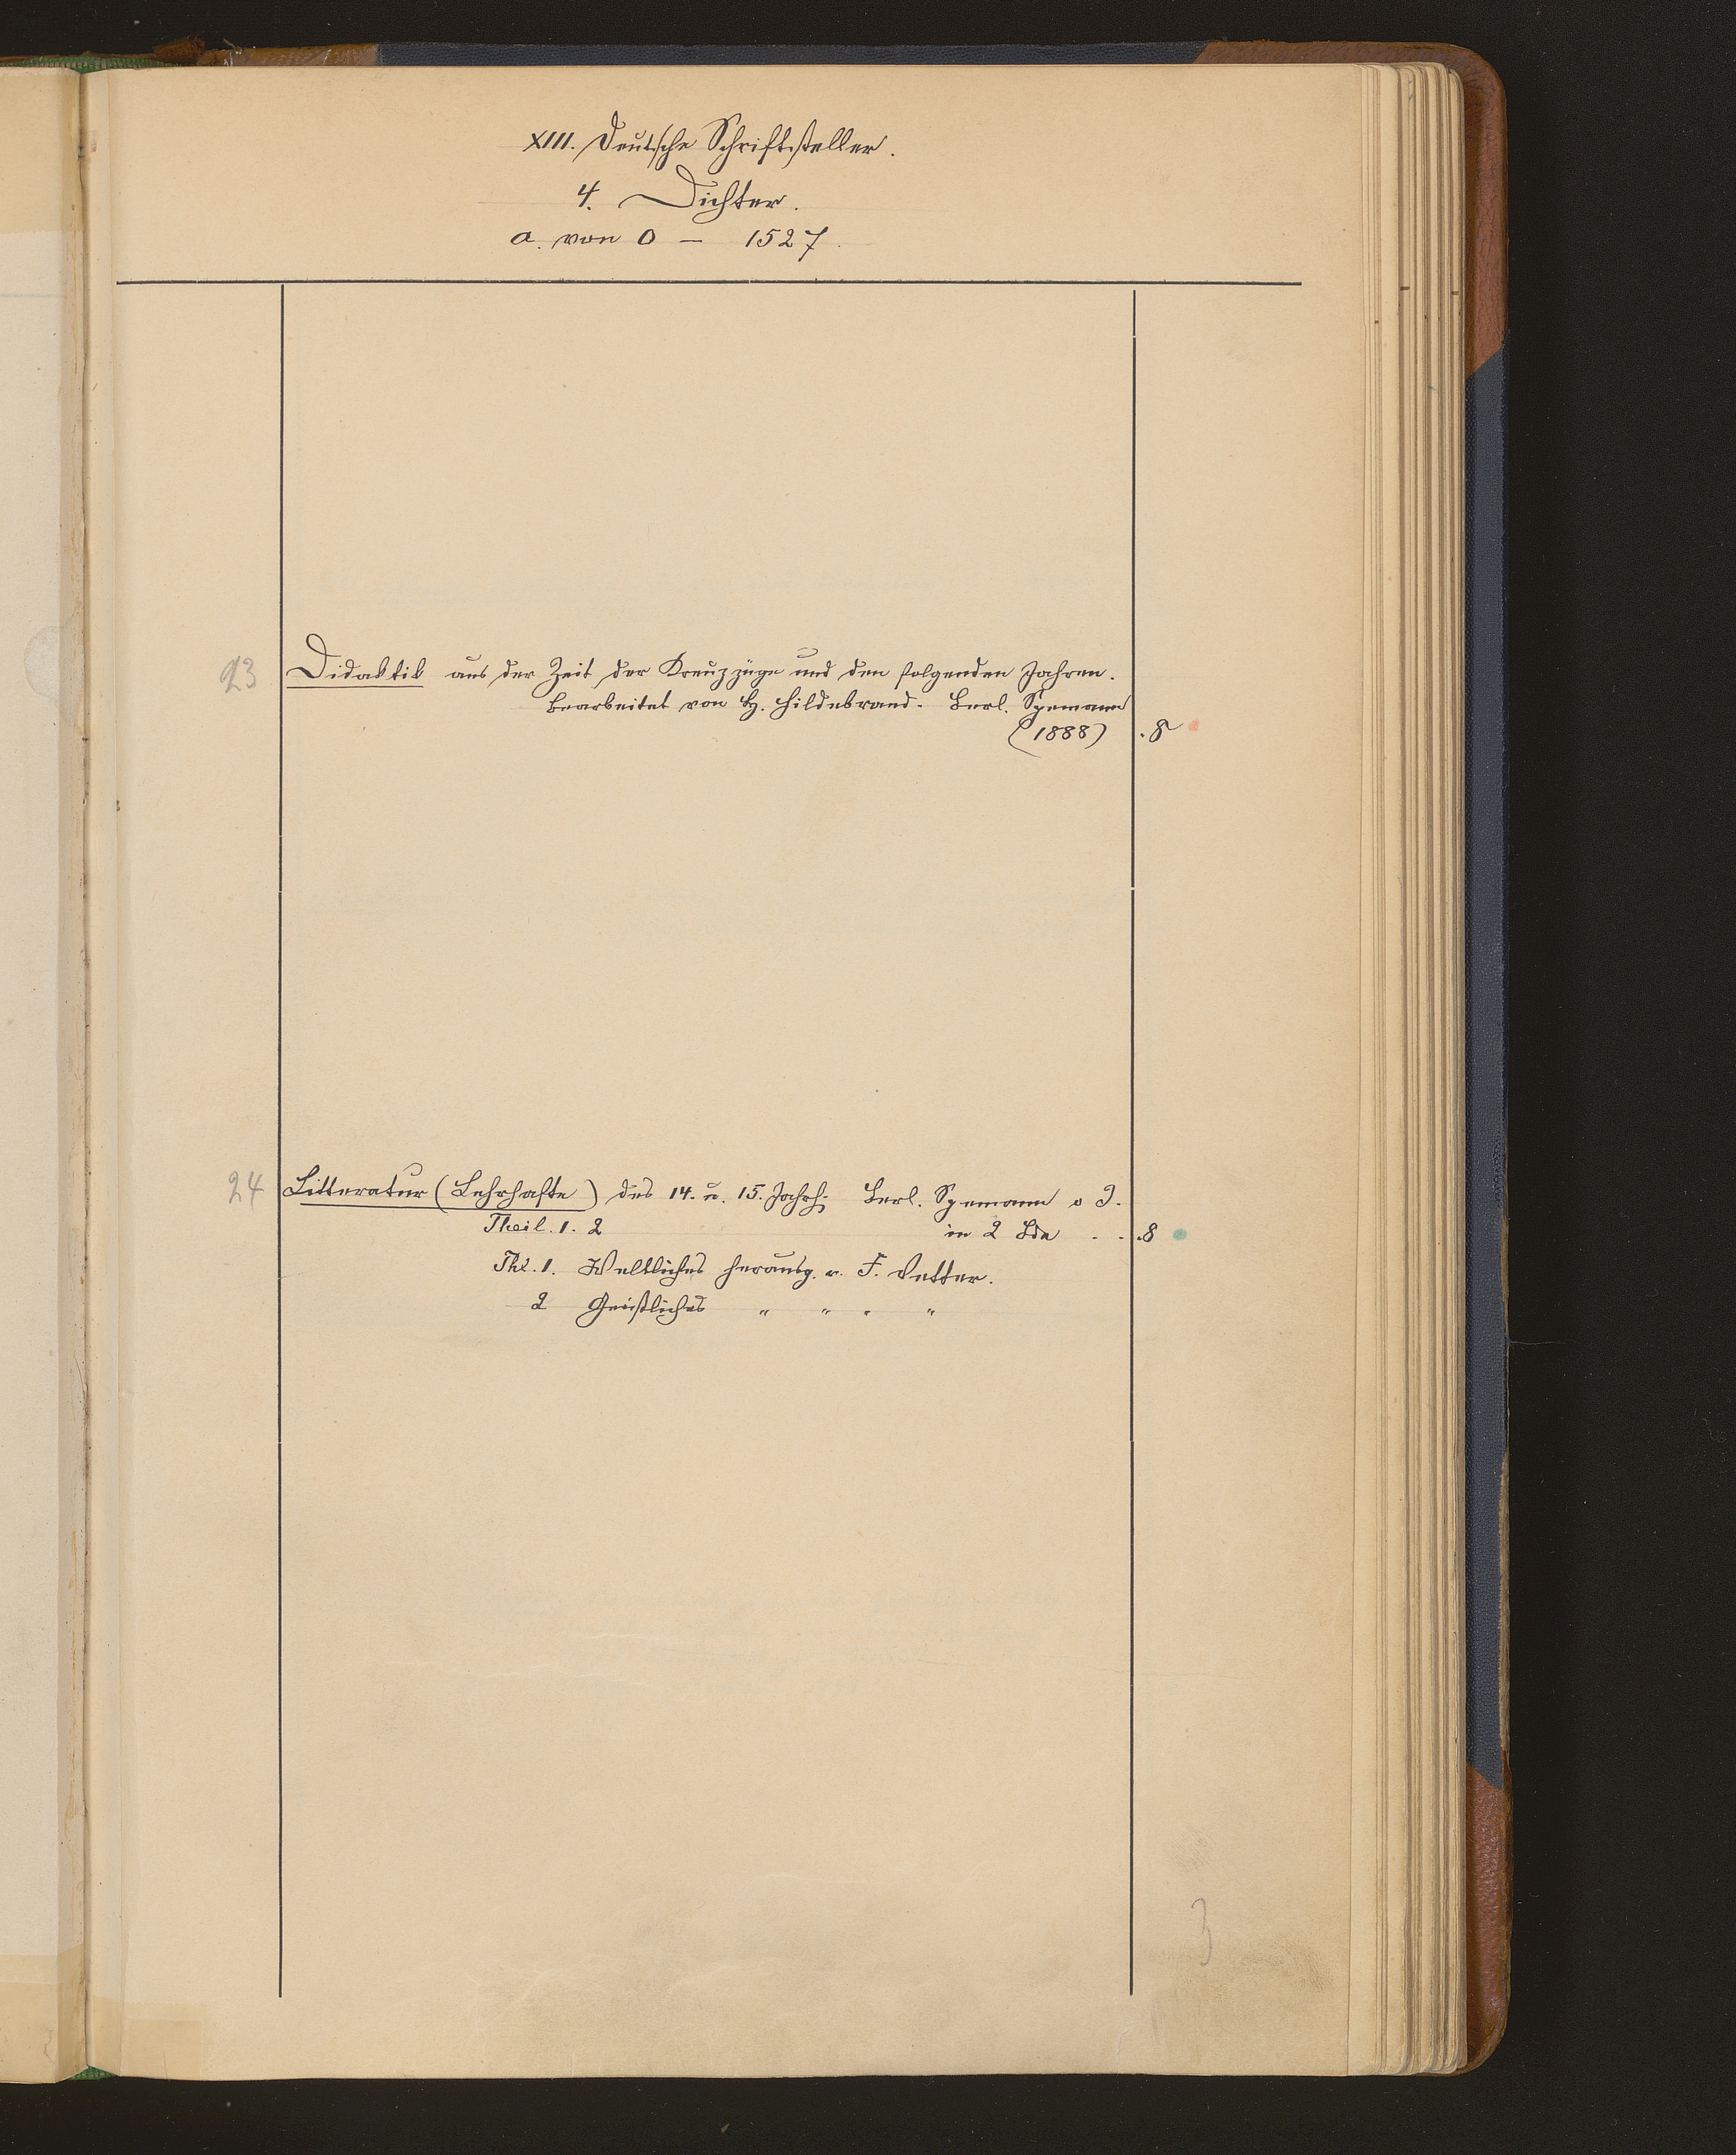 XIII. Deutsche Schriftsteller.
4. Dichter.
a. von 0 — 1527.
23 Didaktik aus der Zeit der Kreuzzüge und den folgenden Jahren.
Bearbeitet von H. Hildebrand. Berl. Spemann
(1888) . 8
24 Litteratur (Lehrhafte) des 14. u. 15. Jahrh. Berl. Spemann o J.
Theil. 1. 2 in 2 Bde . . . 8
Thl. 1. Weltliches herausg. v. F. Vetter.
2 Geistliches " " " "
3